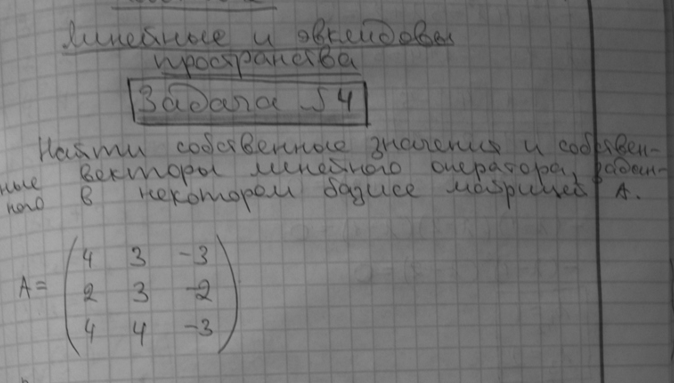 Линейные и эвклидовы
пространства
Задача №4
Найти собственные значения и собствен-
ные векторы линейного оператора, задан-
ного в некотором базисе матрицей A.
4 3 -3
A= 2 3 -2
4 4 -3